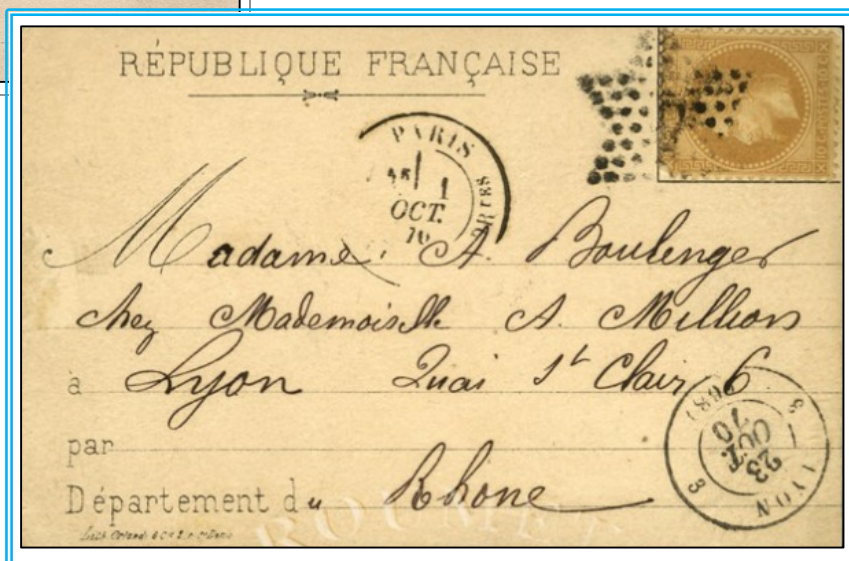 RÉPUBLIQUE FRANÇAISE
PARIS
1
OCT.
70
Madame A. Boulenger
chez Mademoiselle A. Million
à Lyon Quai St Clair 6
par
Département du Rhone
LYON
3
23
OCT.
70
(68)
ROUMET